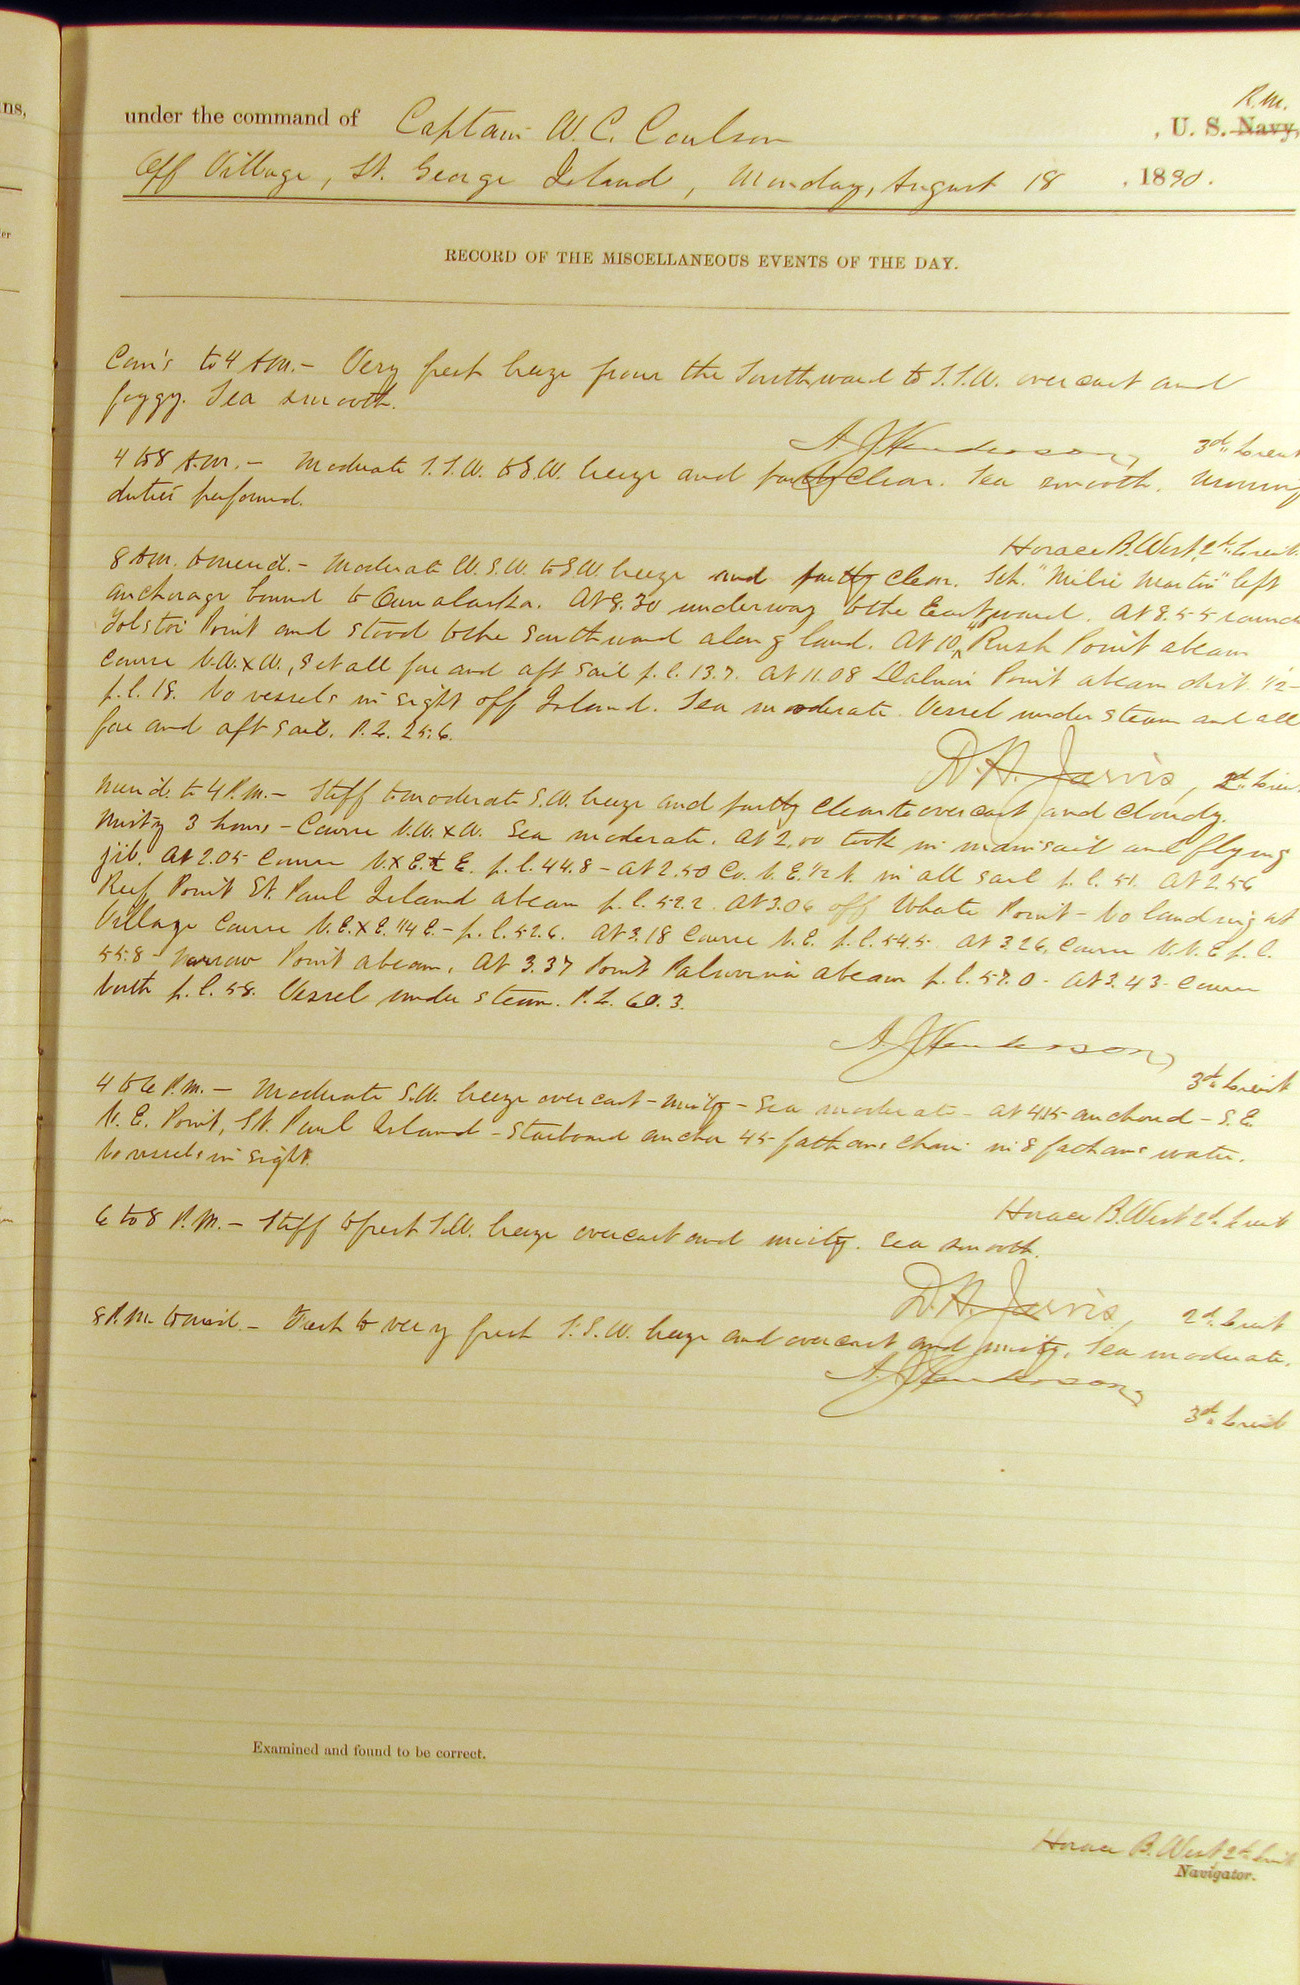 ns,
er
under the command of Captain W. C. Coulson R.M. , U. S. Navy,
Off Village, St. George Island, Monday, August 18 , 1890.
RECORD OF THE MISCELLANEOUS EVENTS OF THE DAY.
Com's to 4 A.M. – Very fresh breeze from the Southward to S.S.W. overcast and
foggy. Sea smooth.
A. J. Henderson, 3d. Lieut
4 to 8 A.M. – Moderate S.S.W. to S.W. breeze and partly clear. Sea smooth. Morning
duties performed.
Horace B. West, 2d. Lieut.
8 A.M. to merid. – Moderate W.S.W. to S.W. breeze and partly clear. Sch. "Milie Martin" left
anchorage bound to Ounalaska. At 8.30 underway to the Eastward. At 8.55 round
Tolstoi Point and stood to the southward along land. At 10, Rush Point abeam
course N.W.xW., set all fore and aft sail p.l. 13.7. At 11.08 Dalnoi Point abeam dist. 1/2
p.l. 18. No vessels in sight off Island. Sea moderate. Vessel under steam and all
fore and aft sail. P.L. 25.6.
D. H. Jarvis, 2d. Lieut
Merid. to 4 P.M. – Stiff to moderate S.W. breeze and partly clear to overcast and cloudy.
Misty 3 hours – Course N.W.xW. Sea moderate. At 2.00 took in mainsail and flying
jib. At 2.05 Course N.x E. E. p.l. 44.8 – At 2.50 Co. N.E. 1/2 N. in all sail p.l. 51. At 2.56
Reef Point St. Paul Island abeam p.l. 52.2. At 3.06 off Whale Point – No landing at
Village Course N.E.xE. 1/4 E. – p.l. 52.6. At 3.18 Course N.E. p.l. 54.5. At 3.26, Course N.N.E p.l.
55.8 – Narrow Point abeam. At 3.37 Point Polovina abeam p.l. 57.0 – At 3.43 – Course
North p.l. 58. Vessel under steam. P.L. 60.3.
A. J. Henderson,
3d. Lieut
4 to 6 P.M. – Moderate S.W. breeze overcast – misty – Sea moderate – At 4.15 anchored – S.E.
N.E. Point, St. Paul Island – Starboard anchor 45 fathoms chain in 8 fathoms water.
No vessels in sight.
Horace B. West 2d. Lieut
6 to 8 P.M. – Stiff to fresh S.W. breeze overcast and misty. Sea smooth.
D. H. Jarvis, 2d. Lieut
8 P.M. to mid. – Fresh to very fresh S.S.W. breeze and overcast and misty. Sea moderate.
A. J. Henderson,
3d. Lieut
Examined and found to be correct.
Horace B. West 2d. Lieut
Navigator.